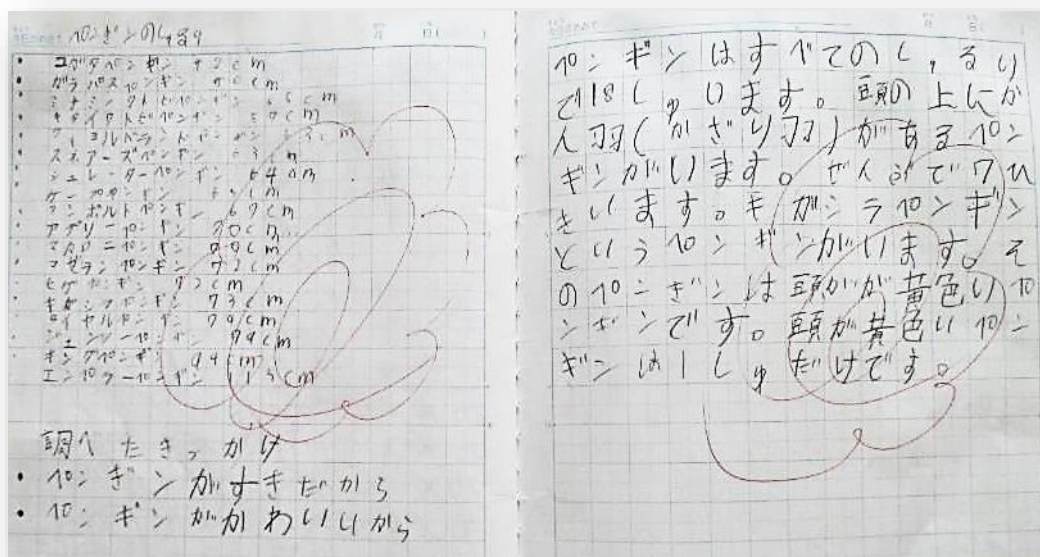 ペンギンのしゅるい
・ コガタペンギン 42cm
・ ガラパスペンギン 50cm
・ ミナミイワトビペンギン
・ キタイワトビペンギン 57cm
・ フィヨルドランドペンギン
・ スネアーズペンギン 63cm
・ シュレーターペンギン 64cm
・ ケープペンギン
・ フンボルトペンギン 67cm
・ アデリーペンギン 70cm
・ マカロニペンギン 70cm
・ マゼランペンギン 72cm
・ ヒゲペンギン 72cm
・ キガシラペンギン 73cm
・ ロイヤルペンギン
・ ジェンツーペンギン
・ キングペンギン 94cm
・ エンペラーペンギン
調べたきっかけ
・ ペンぎンがすきだから
・ ペンギンがかわいいから
ペンギンはすべてのしゅるい
で18しゅいます。頭の上にか
ん羽(かざり羽)があるペン
ギンがいます。ぜんぶで7ひ
きいます。キガシラペンギン
というペンギンがいます。そ
のペンぎンは頭がが黄色いペ
ンギンです。頭が黄色いペン
ギンは1しゅだけです。